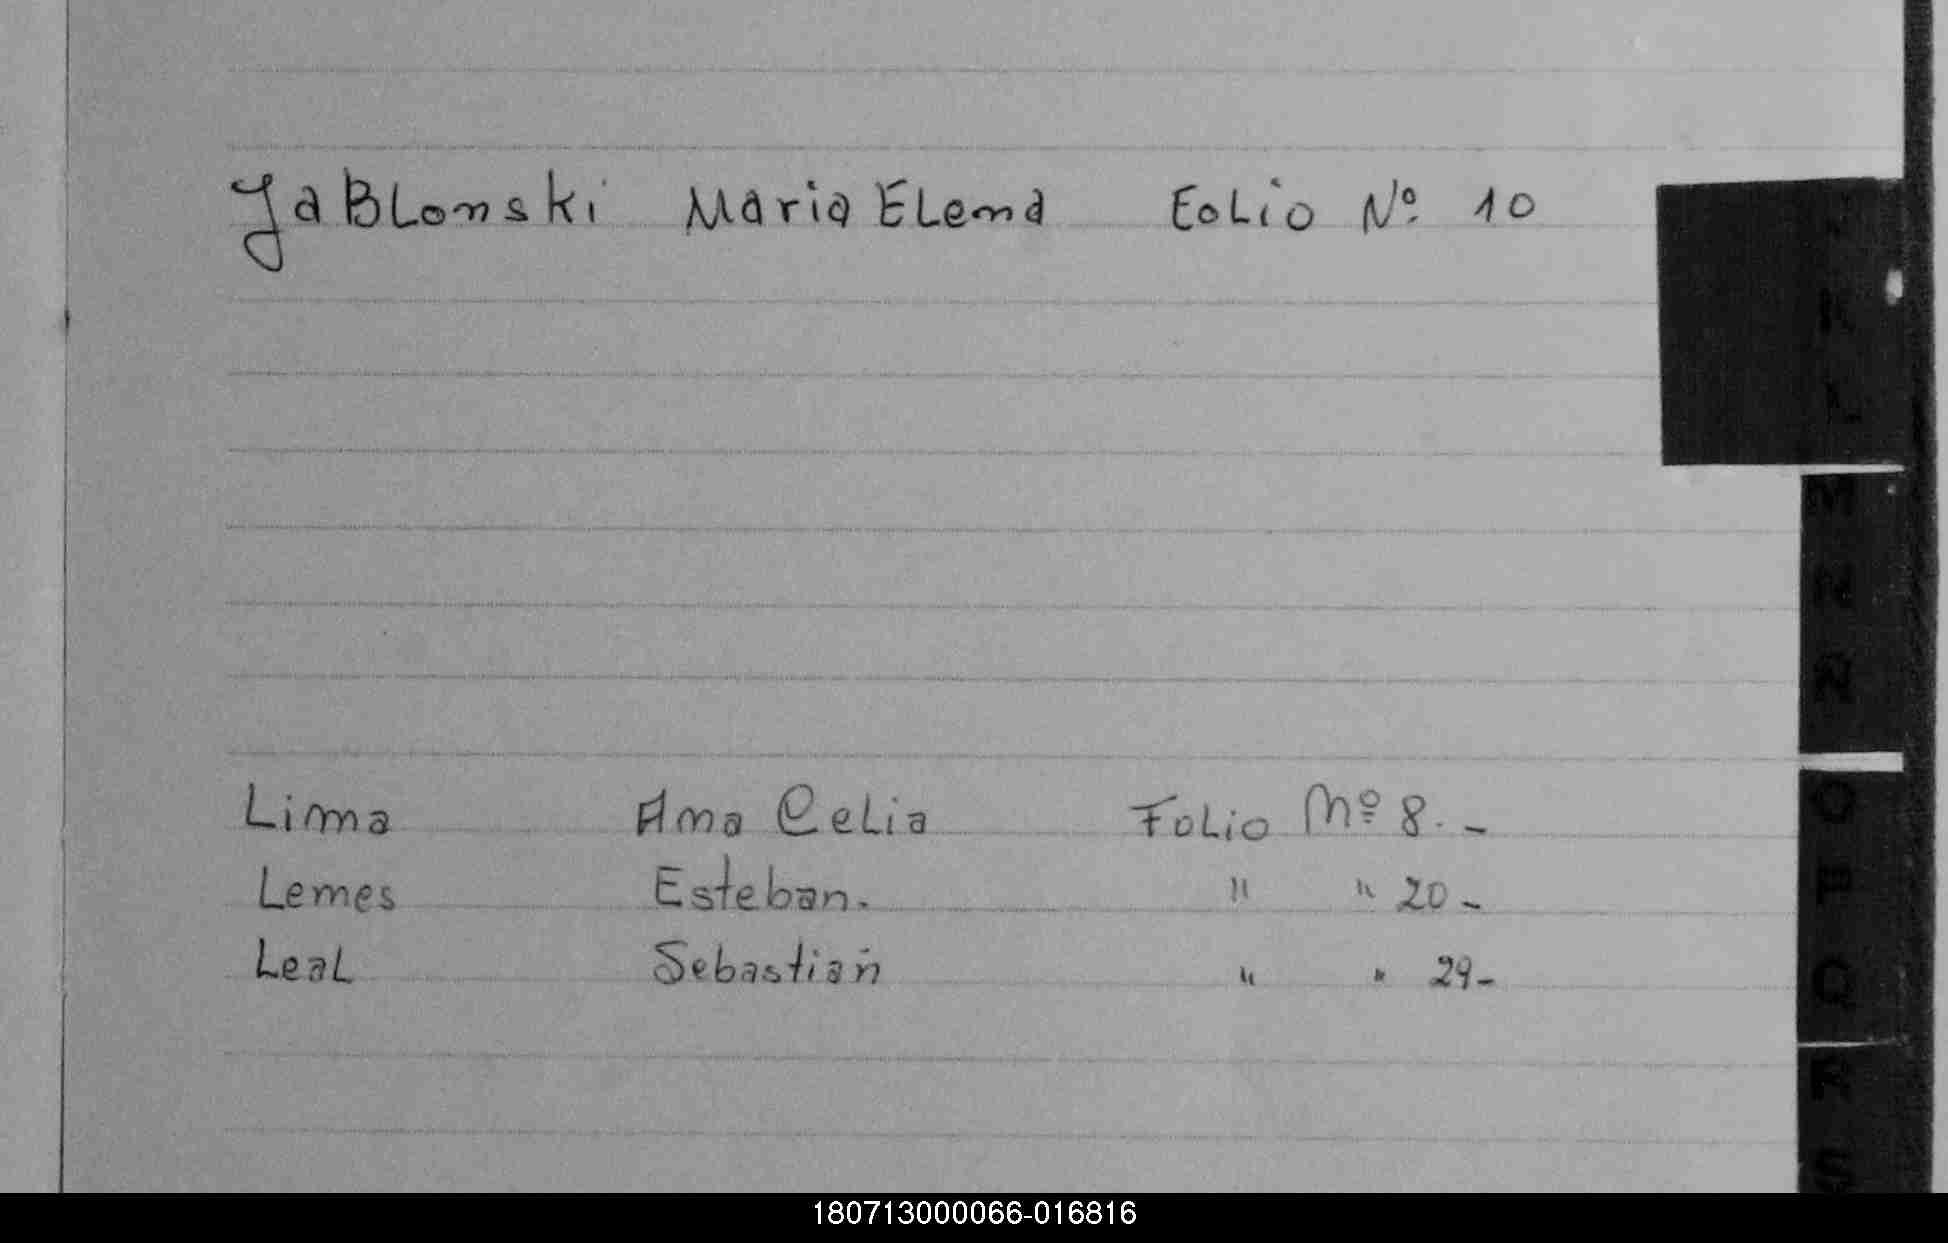 JaBLonski Maria ELena FoLio Nº 10
K
L
M
N
Ñ
Lima Ana CeLia FoLio Nº 8. -
O
Lemes Esteban. " " 20 -
P
LeaL Sebastián " " 29 -
Q
R
S
180713000066-016816